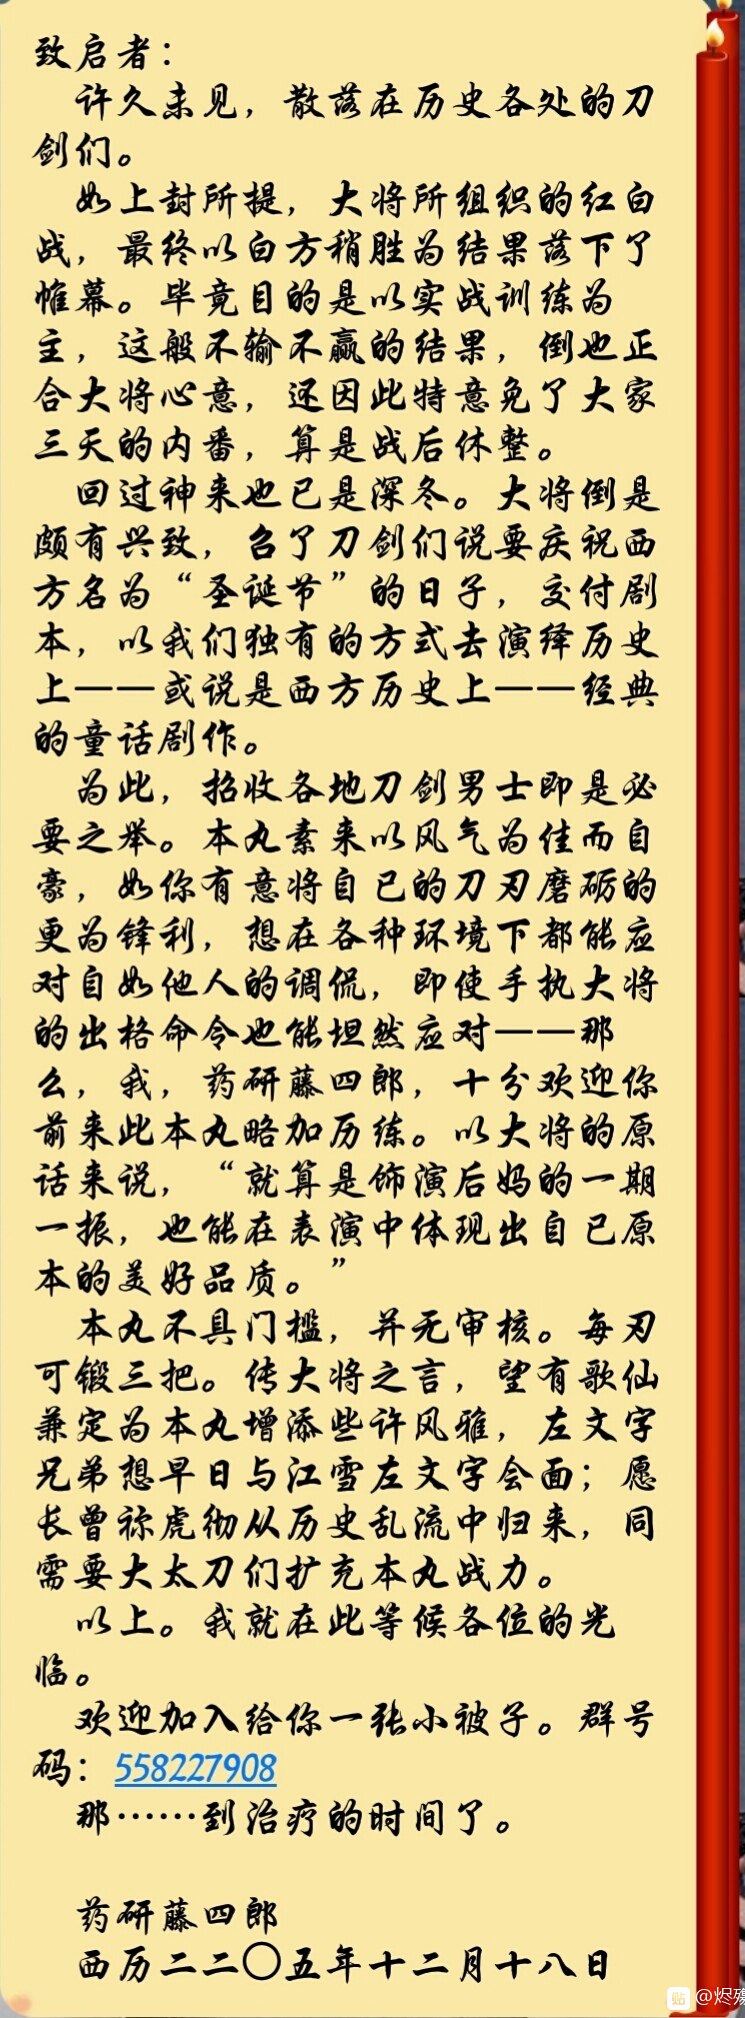 致启者：
许久未见，散落在历史各处的刀
剑们。
如上封所提，大将所组织的红白
战，最终以白方稍胜为结果落下了
帷幕。毕竟目的是以实战训练为
主，这般不输不赢的结果，倒也正
合大将心意，还因此特意免了大家
三天的内番，算是战后休整。
回过神来也已是深冬。大将倒是
颇有兴致，召了刀剑们说要庆祝西
方名为“圣诞节”的日子，交付剧
本，以我们独有的方式去演绎历史
上——或说是西方历史上——经典
的童话剧作。
为此，招收各地刀剑男士即是必
要之举。本丸素来以风气为佳而自
豪，如你有意将自己的刀刃磨砺的
更为锋利，想在各种环境下都能应
对自如他人的调侃，即使手执大将
的出格命令也能坦然应对——那
么，我，药研藤四郎，十分欢迎你
前来此本丸略加历练。以大将的原
话来说，“就算是饰演后妈的一期
一振，也能在表演中体现出自己原
本的美好品质。”
本丸不具门槛，并无审核。每刃
可锻三把。传大将之言，望有歌仙
兼定为本丸增添些许风雅，左文字
兄弟想早日与江雪左文字会面；愿
长曾祢虎彻从历史乱流中归来，同
需要大太刀们扩充本丸战力。
以上。我就在此等候各位的光
临。
欢迎加入给你一张小被子。群号
码：558227908
那……到治疗的时间了。
药研藤四郎
西历二二〇五年十二月十八日
贴 @烬殇